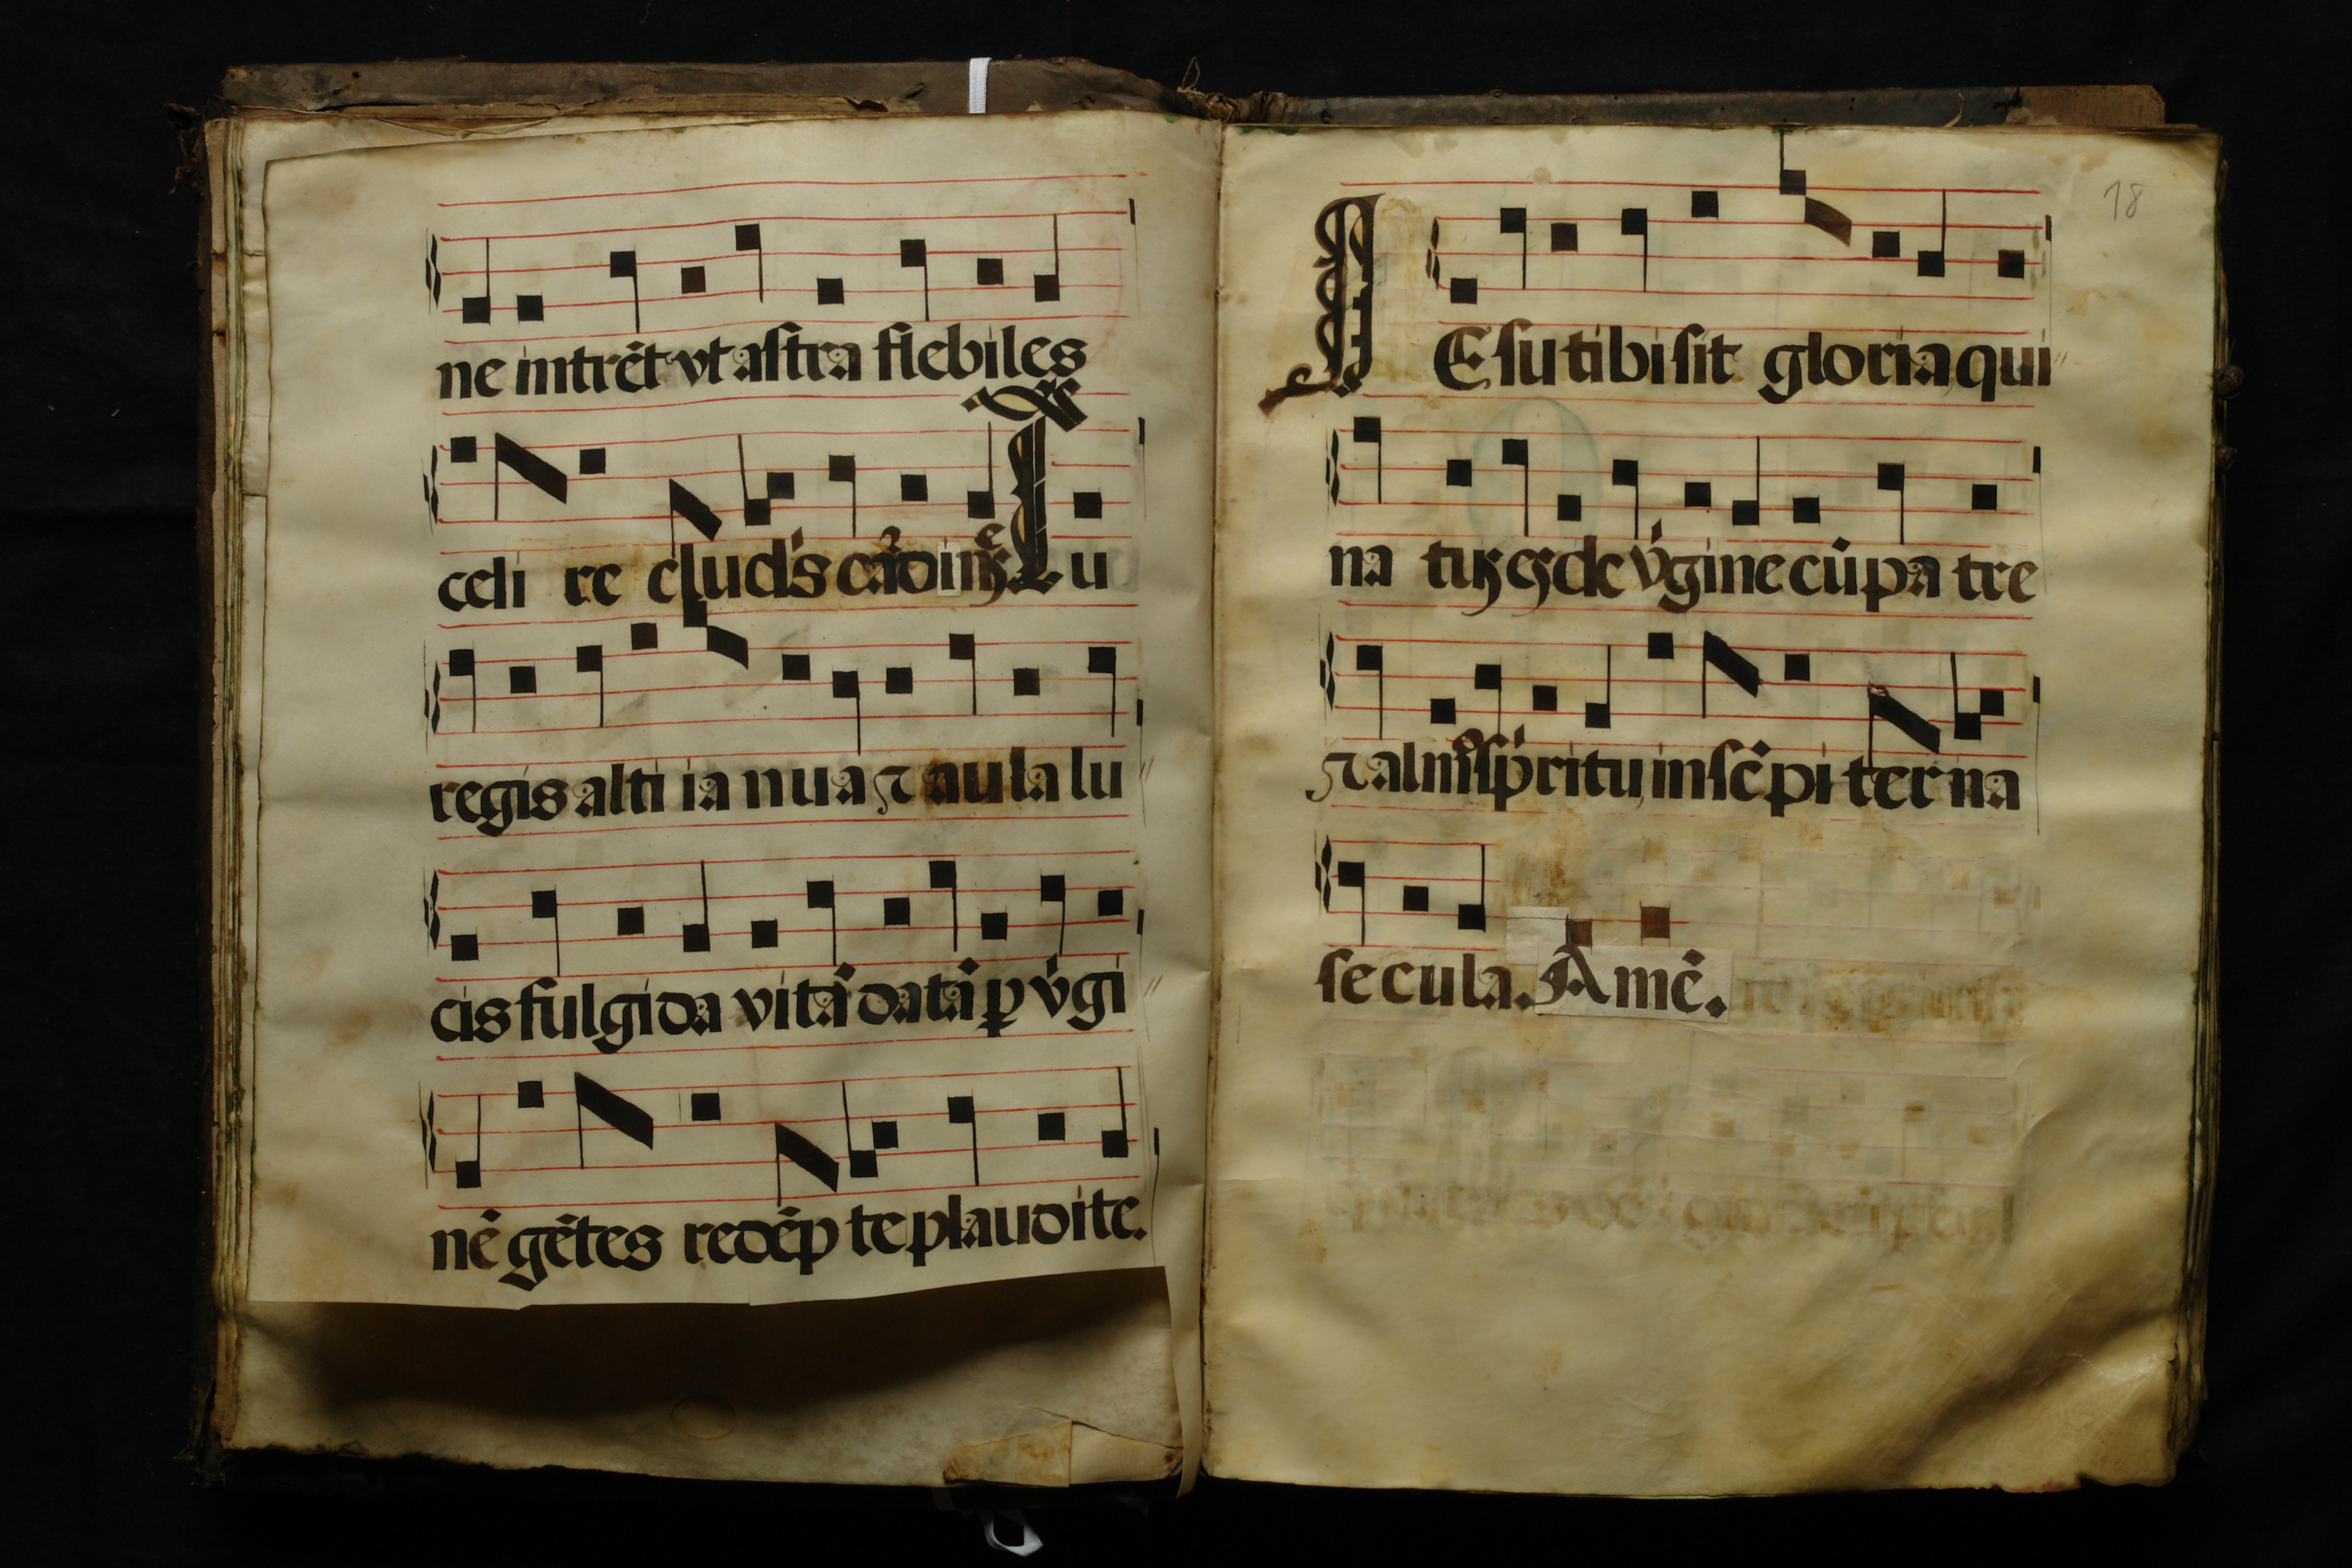 ne intrēt vt astra flebiles
celi re cludis cardines Lu
regis alti ia nua ⁊ aula lu
cis fulgida vitā datā ꝑ v̇gi
nē gētes redēp te plaudite.
18
IEsu tibi sit gloria qui
na tus es de v̇gine cū pa tre
⁊ almo spiritu in sē pi ter na
se cula. Amē.